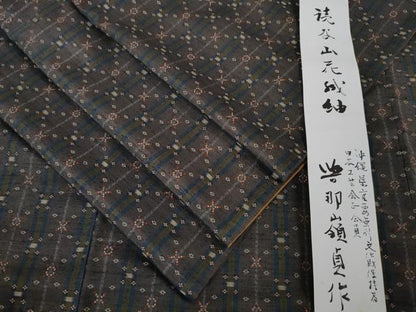 読谷山花織紬
沖縄県 無形文化財保持者
日本工芸会正会員
與那嶺貞作